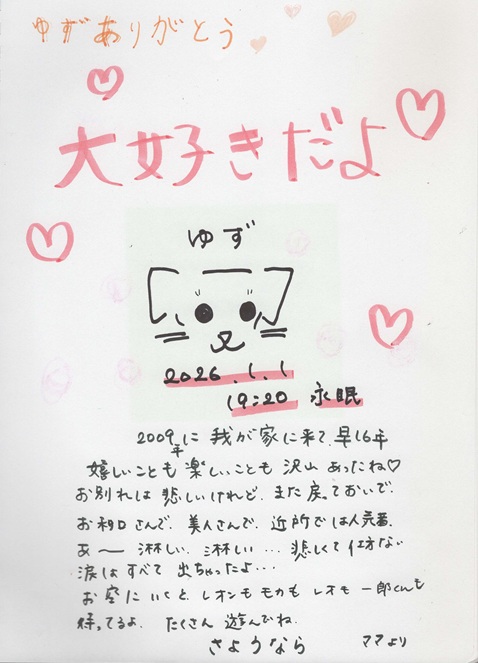 ゆずありがとう
大好きだよ
ゆず
2026.1.1
19:20 永眠
2009年に 我が家に来て、早16年
嬉しいことも 楽しいことも 沢山 あったね♡
お別れは 悲しいけれど、また 戻っておいで。
お利口さんで、美人さんで、近所では人気者。
あ〜 淋しい 淋しい… 悲しくて 仕方ない
涙は すべて 出ちゃったよ…
お空に いくと、レオンも モカも レオも 一郎くんも
待ってるよ。 たくさん 遊んでね。
さようなら ママより